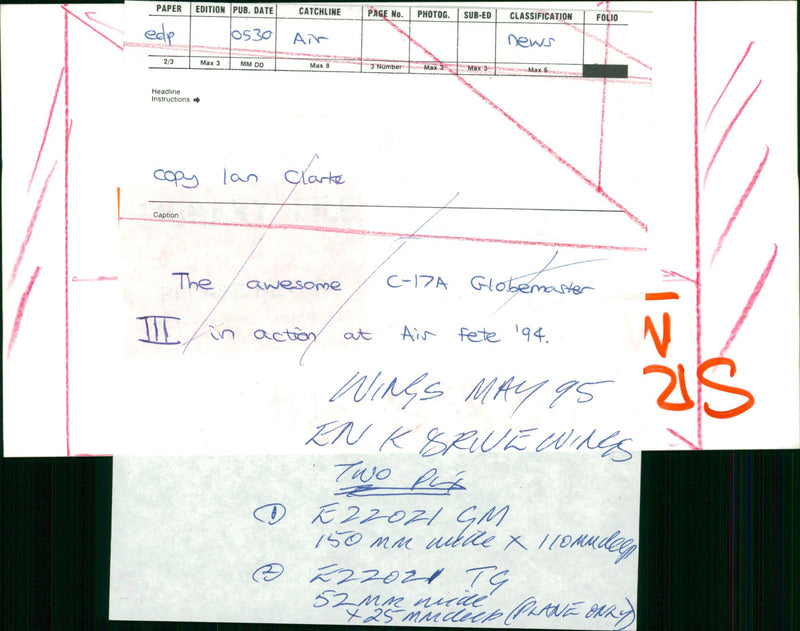 PAPER EDITION PUB. DATE CATCHLINE PAGE No. PHOTOG. SUB-ED CLASSIFICATION FOLIO
edp 0530 Air news
2/3 Max 3 MM DD Max 8 3 Number Max 3 Max 3 Max 6
Headline
Instructions
copy Ian Clarke
Caption
The awesome C-17A Globemaster
III in action at Air Fete '94.
WINGS MAY 95
WINGS
TWO PIX
① E22021 GM
150 mm wide x 110mm deep
② E22021 TG
52 mm wide
x 25 mm deep (PLANE ONLY)